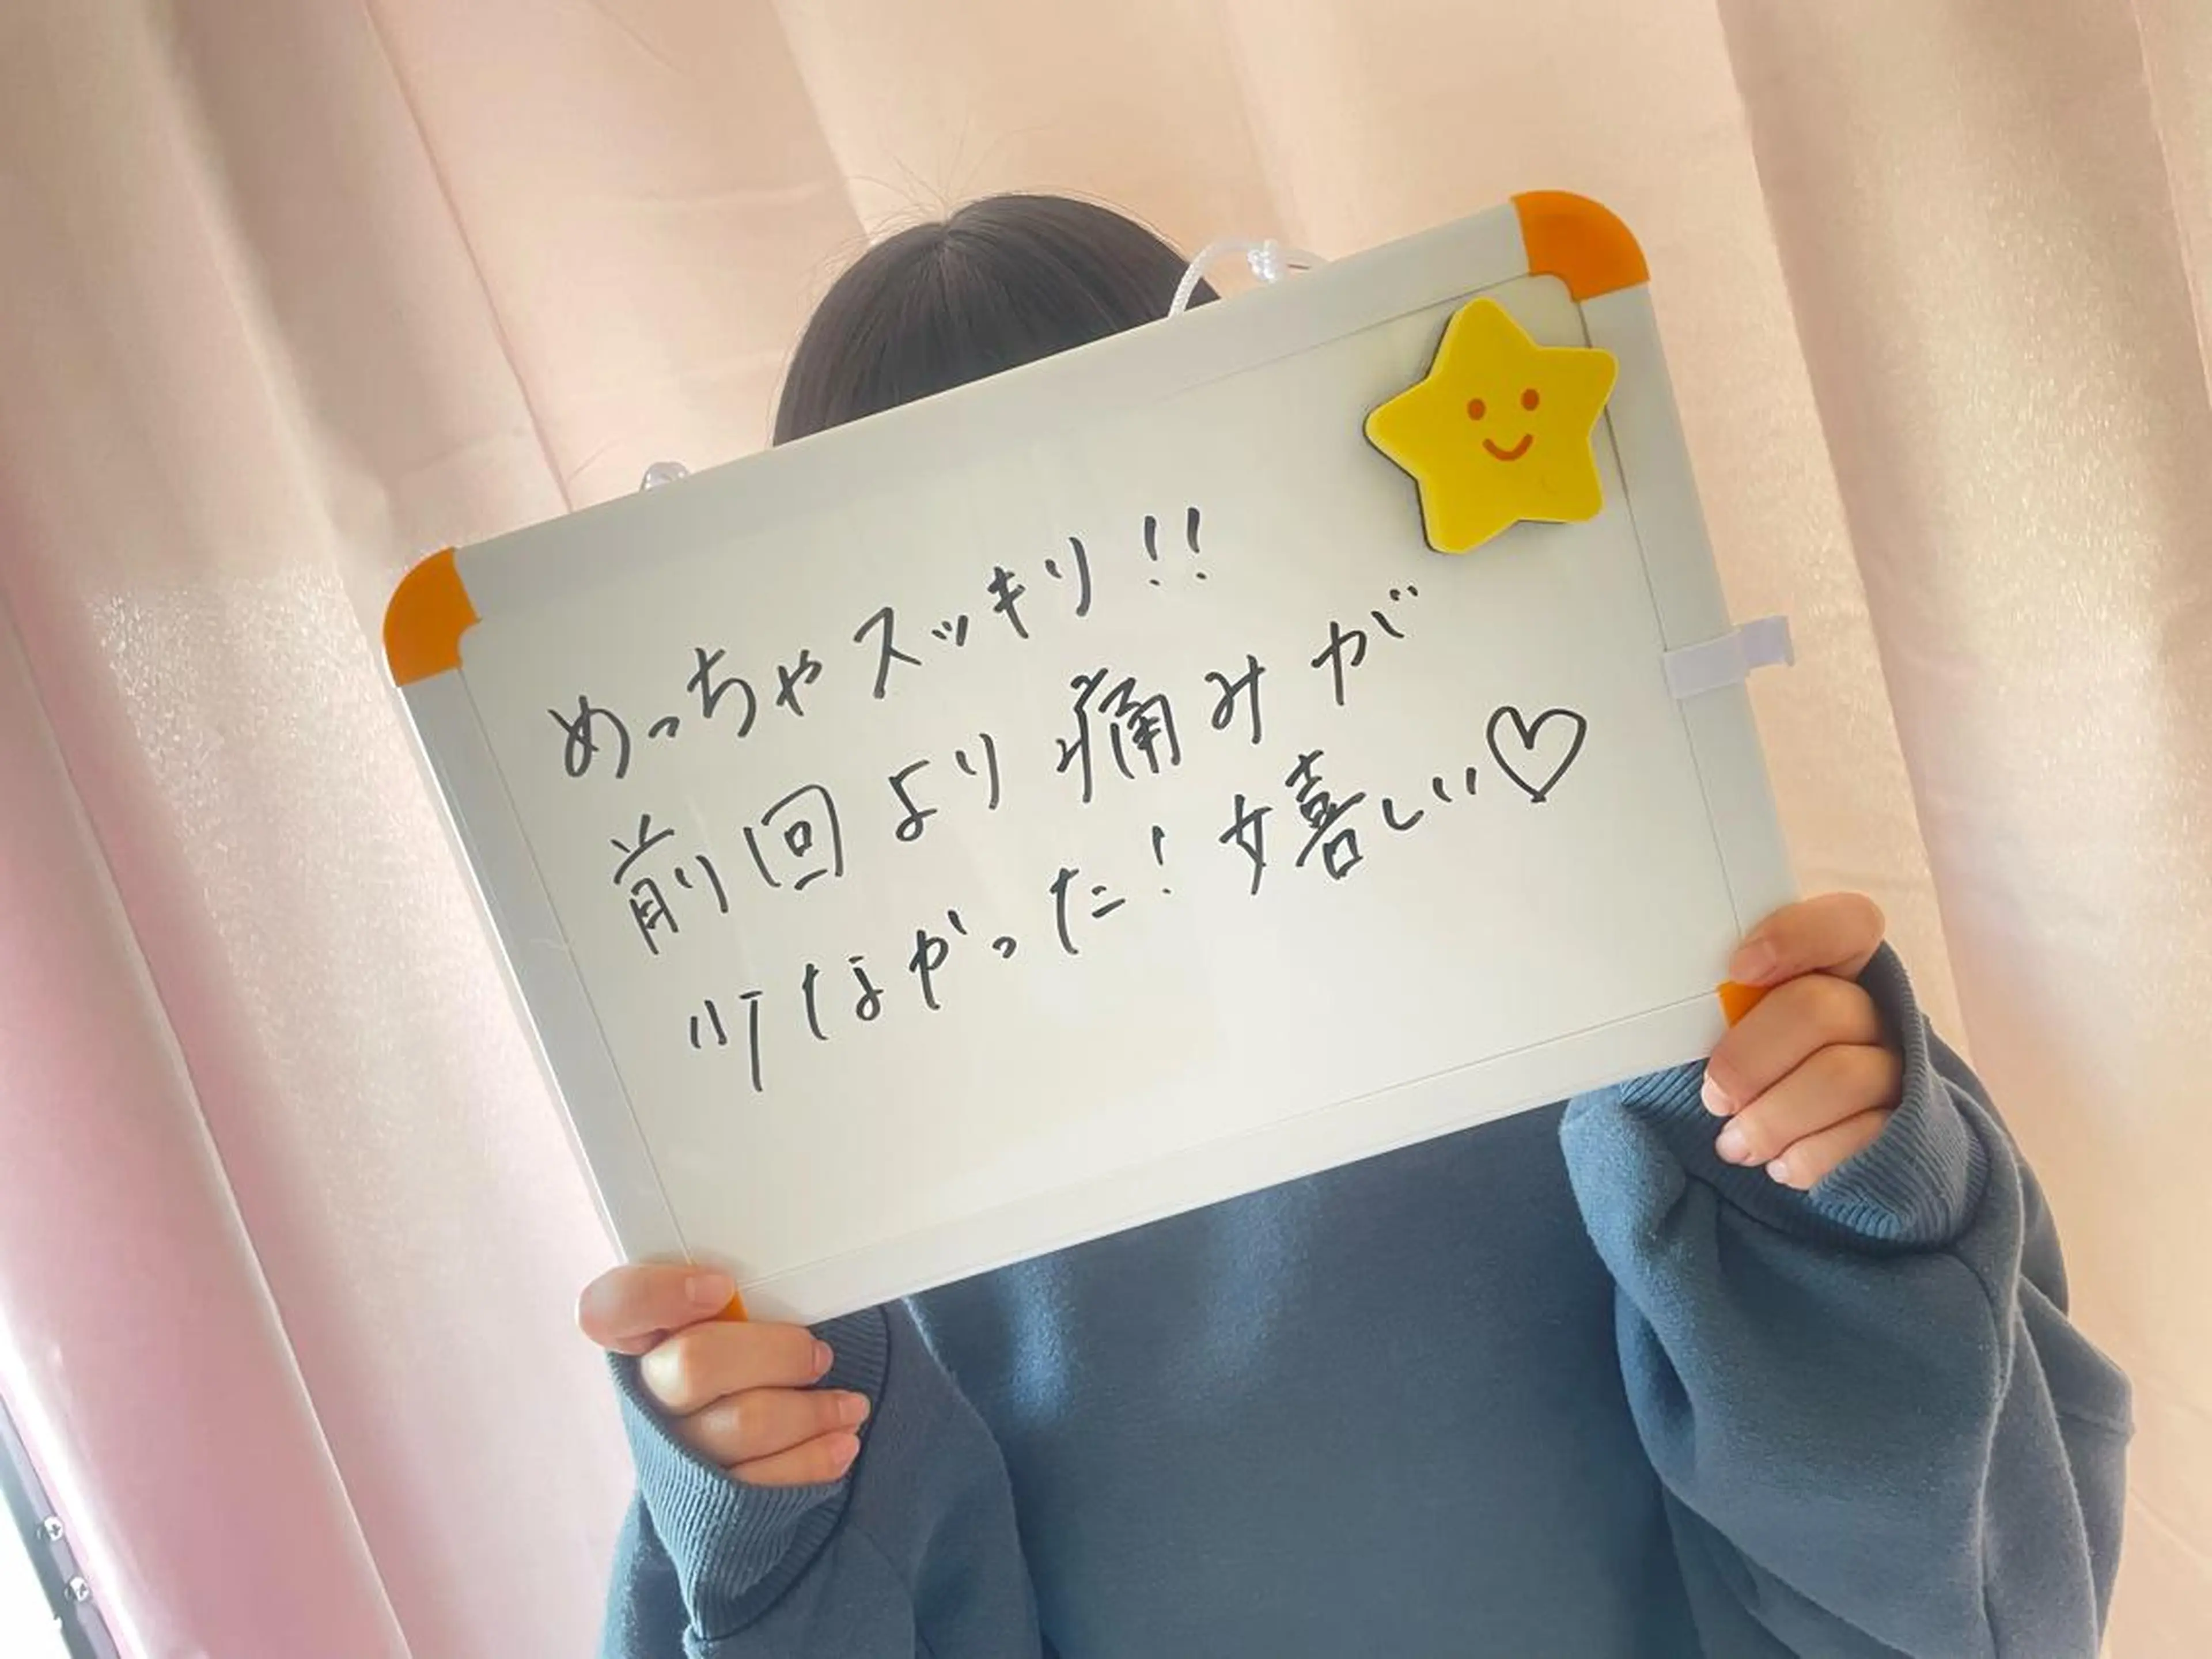 めっちゃスッキリ!!
前回より痛みが
少なかった!嬉しい♡